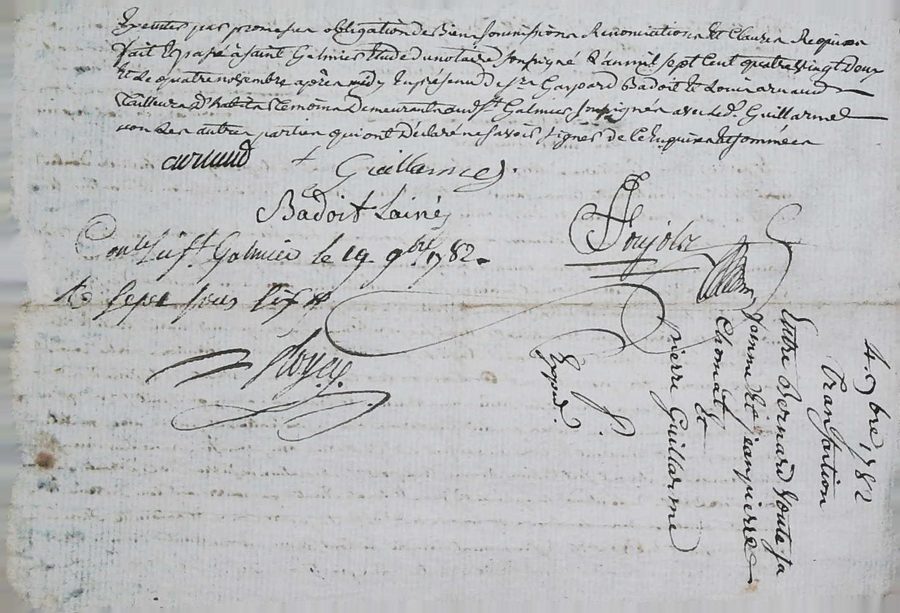 par promesse obligation de Biens soumissions Renonciations Et Clauses Requises
fait Et passé à saint Galmier Etude du notaire soussigné L'an mil sept Cent quatre vingt Deux
Et Le quatre novembre après midy En présence de sr Gaspard Badoit Et Louis arnaud
Tailleur d'habits Témoins demeurants aud st Galmier soussignés avec led Guillarme
non Les autres parties qui ont Déclaré ne savoir signer de ce Enquises Et sommées
arnaud Guillarme
Badoit Lainé
Conlé à st Galmier le 19 9bre 1782.
sept sous six
4. 9bre 1782
Transaction
Entre Bernard
Jeanne Et jean pierre
Chomat Et
pierre Guillarme